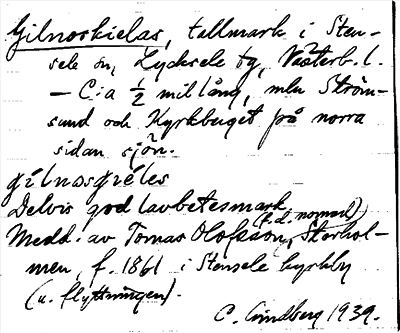 Gilnoskielas, tallmark i Sten-
sele sn, Lycksele tg, Västerb. l.
— C:a ½ mil lång, mln Ström-
sund och Kyrkberget på norra
sidan sjön.
gilnasgiéles
Delvis god lavbetesmark.
(f.d. nomad)
Medd. av Tomas Olofsson, Storhol-
men, f. 1861 i Stensele kyrkby
(u. flyttningen).
C. Lindberg 1939.